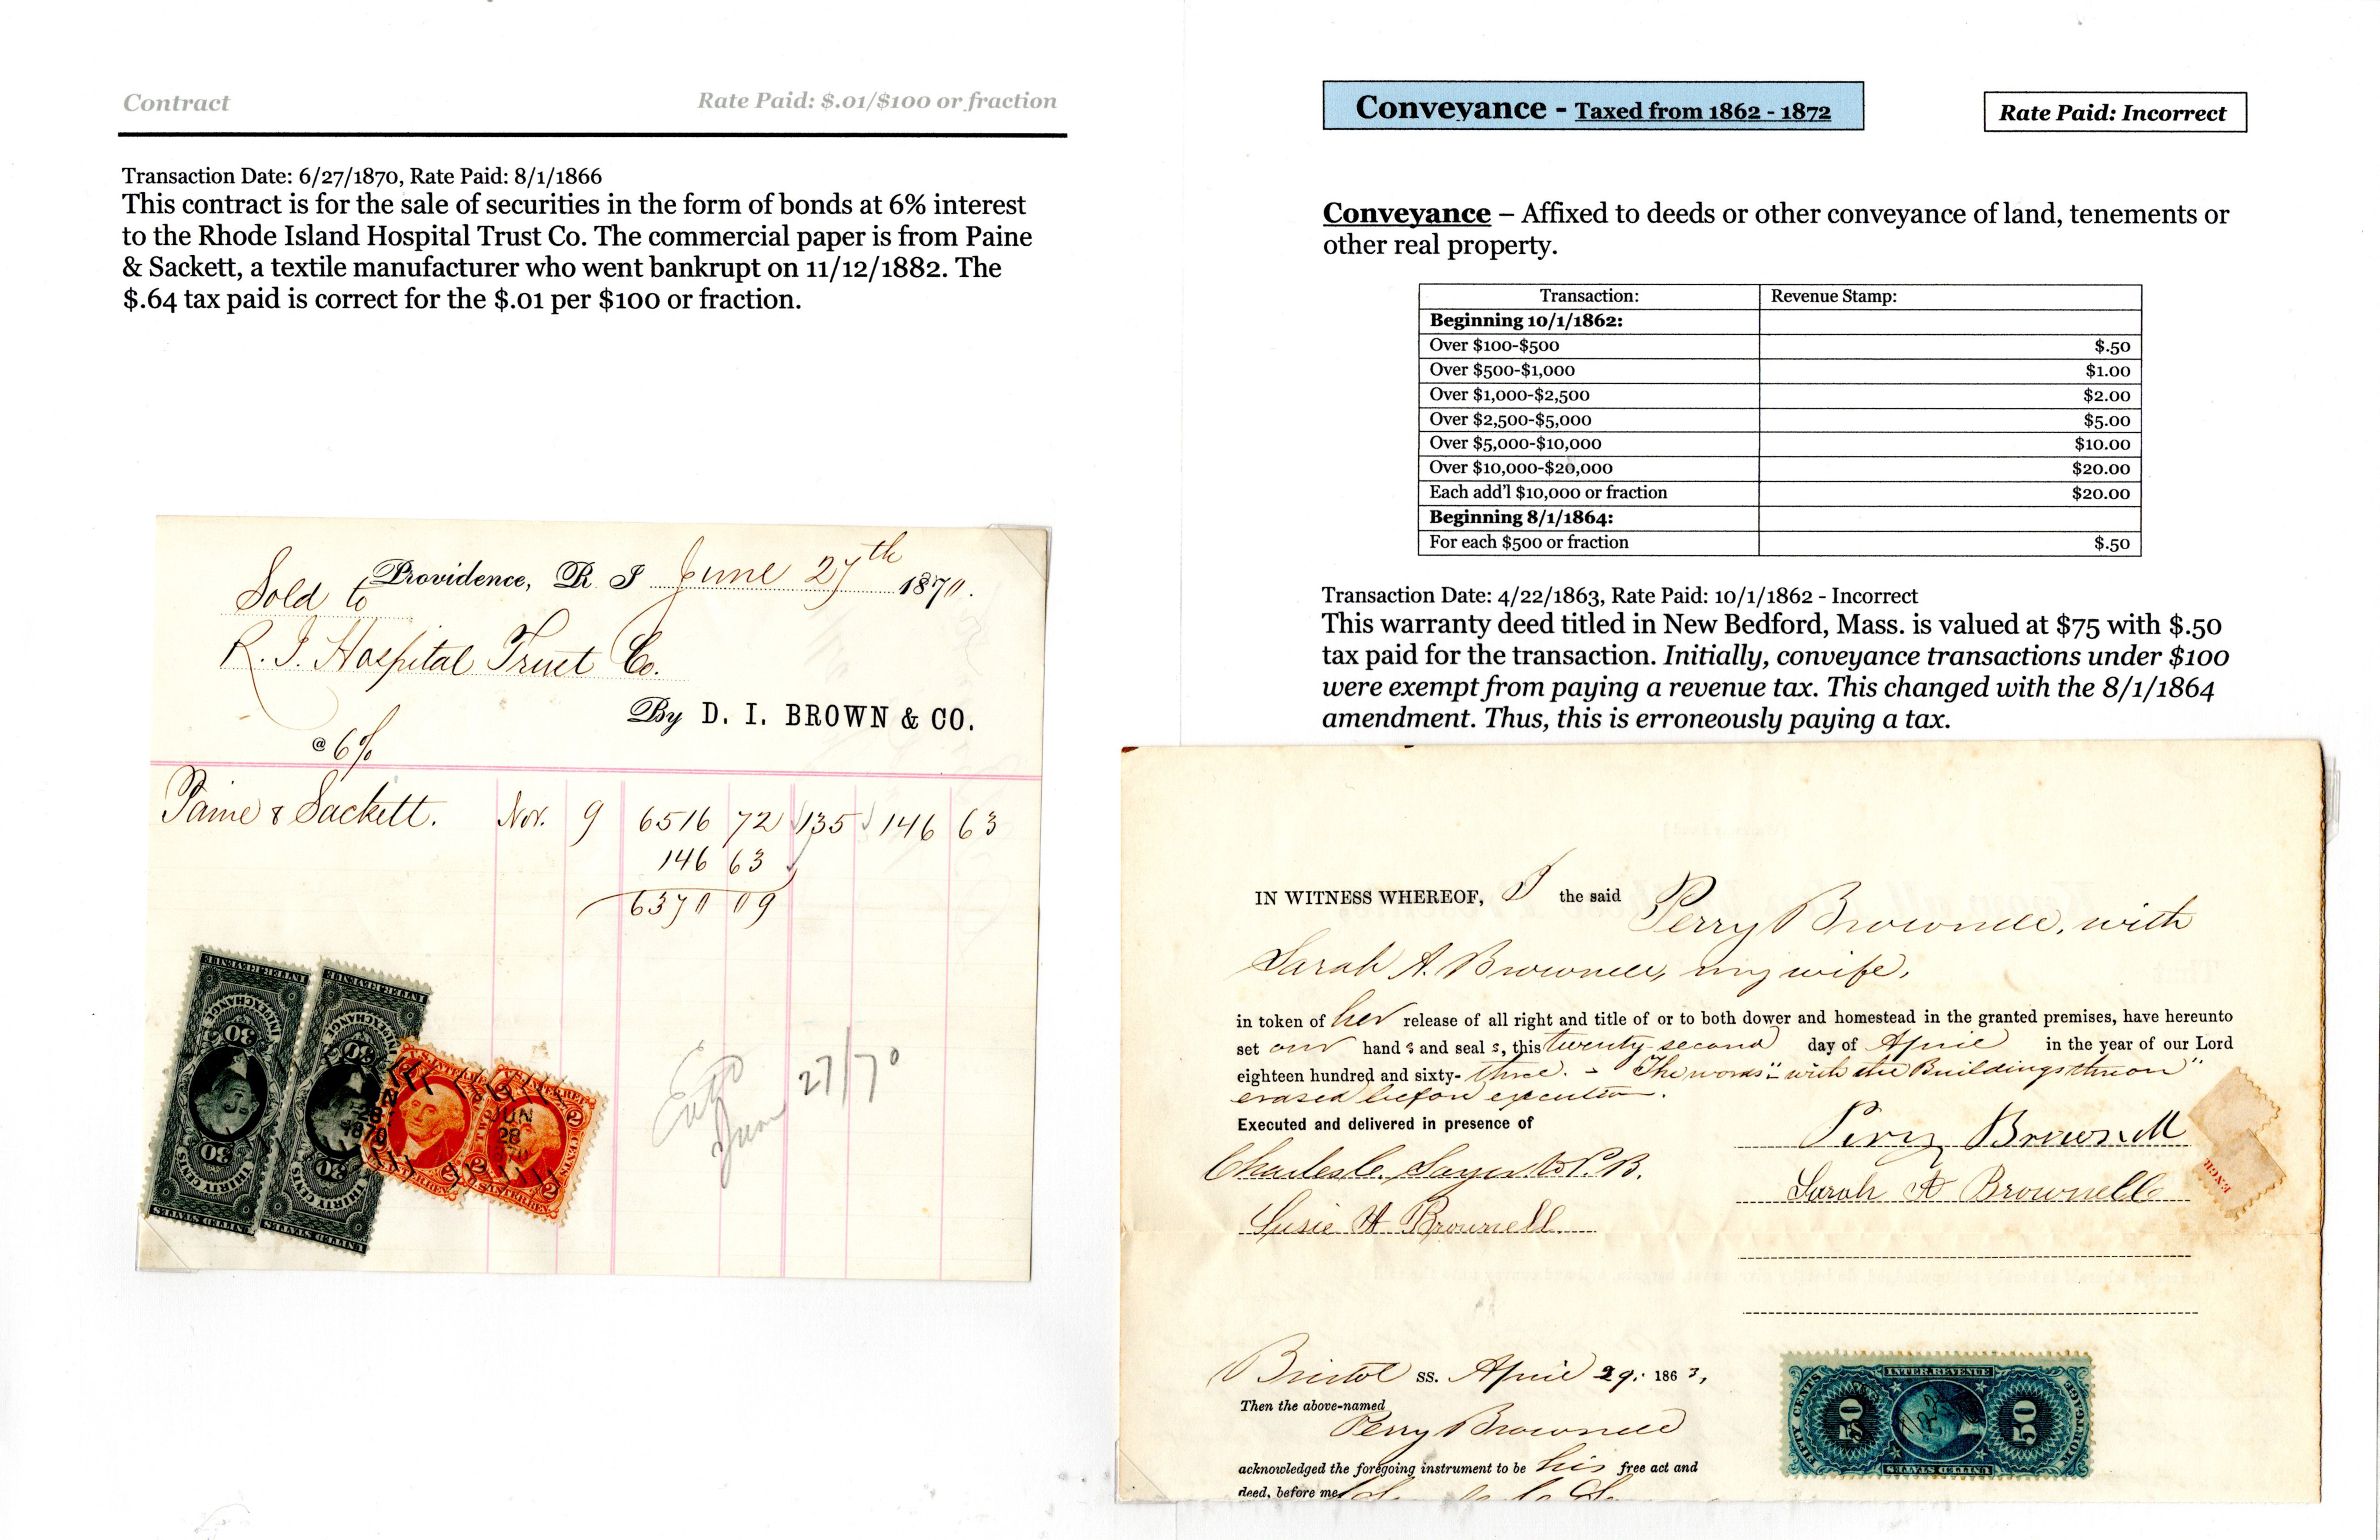 Contract
Rate Paid: $.01/$100 or fraction
Transaction Date: 6/27/1870, Rate Paid: 8/1/1866
This contract is for the sale of securities in the form of bonds at 6% interest
to the Rhode Island Hospital Trust Co. The commercial paper is from Paine
& Sackett, a textile manufacturer who went bankrupt on 11/12/1882. The
$.64 tax paid is correct for the $.01 per $100 or fraction.
Providence, R. I June 27th 1870.
Sold to
R. I. Hospital Trust Co.
By D. I. BROWN & CO.
@ 6%
Paine & Sackett. Nov. 9 6516 72 135 146 63
146 63
6370 09
INTER.REVENUE
INL.EXCHANGE
30
30
THIRTY CENTS
UNITED STATES
INTER.REVENUE
EXCHANGE
30
30
THIRTY CENTS
UNITED STATES
28
1870
JUN
28
1870
June 27/70
Conveyance - Taxed from 1862 - 1872
Rate Paid: Incorrect
Conveyance – Affixed to deeds or other conveyance of land, tenements or
other real property.
Transaction: Revenue Stamp:
Beginning 10/1/1862:
Over $100-$500 $.50
Over $500-$1,000 $1.00
Over $1,000-$2,500 $2.00
Over $2,500-$5,000 $5.00
Over $5,000-$10,000 $10.00
Over $10,000-$20,000 $20.00
Each add'l $10,000 or fraction $20.00
Beginning 8/1/1864:
For each $500 or fraction $.50
Transaction Date: 4/22/1863, Rate Paid: 10/1/1862 - Incorrect
This warranty deed titled in New Bedford, Mass. is valued at $75 with $.50
tax paid for the transaction. Initially, conveyance transactions under $100
were exempt from paying a revenue tax. This changed with the 8/1/1864
amendment. Thus, this is erroneously paying a tax.
IN WITNESS WHEREOF, I the said Perry Brownell, with
Sarah A. Brownell, my wife,
in token of her release of all right and title of or to both dower and homestead in the granted premises, have hereunto
set our hand s and seal s, this twenty-second day of April in the year of our Lord
eighteen hundred and sixty- three. - The words "with the Buildings thereon"
erased before execution.
Executed and delivered in presence of
Perry Brownell
Sarah A Brownell
Susie H Brownell
Bristol ss. April 29. 1863,
Then the above-named
Perry Brownell
acknowledged the foregoing instrument to be his free act and
deed, before me,
INTER.REVENUE
FIFTY CENTS
50
50
MORTGAGE
UNITED STATES